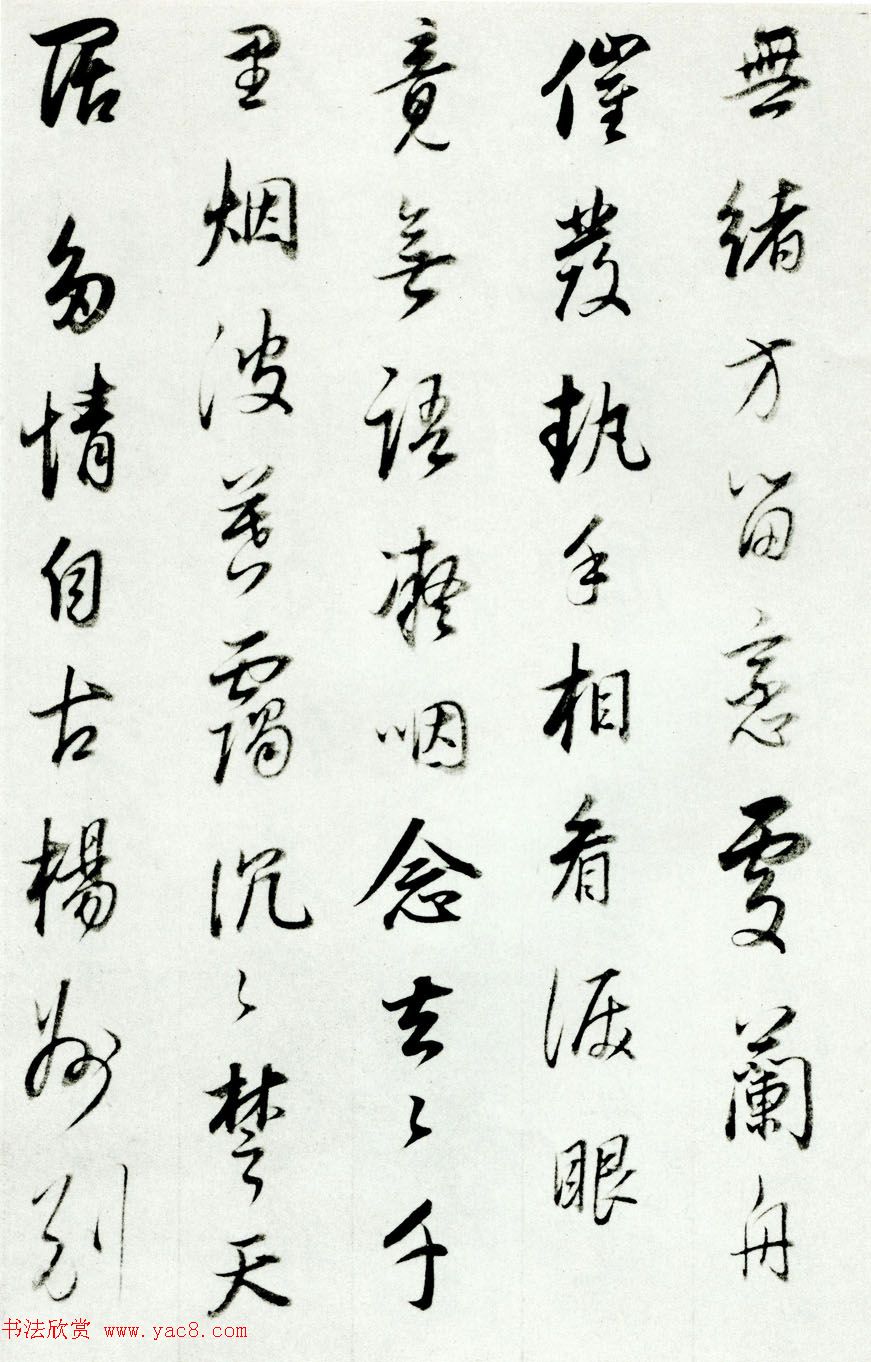 無緒方留戀處蘭舟
催發執手相看淚眼
竟無語凝咽念去々千
里烟波暮靄沉々楚天
闊多情自古楊離別
书法欣赏 www.yac8.com